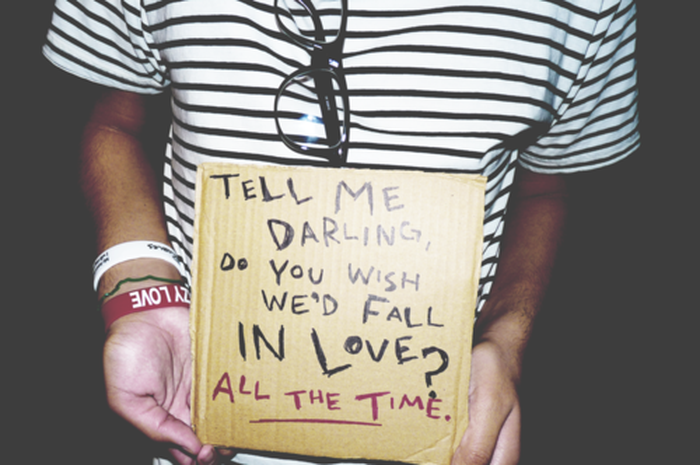 TELL ME
DARLING,
DO YOU WISH
WE'D FALL
IN LOVE?
ALL THE TIME.
ZY LOVE